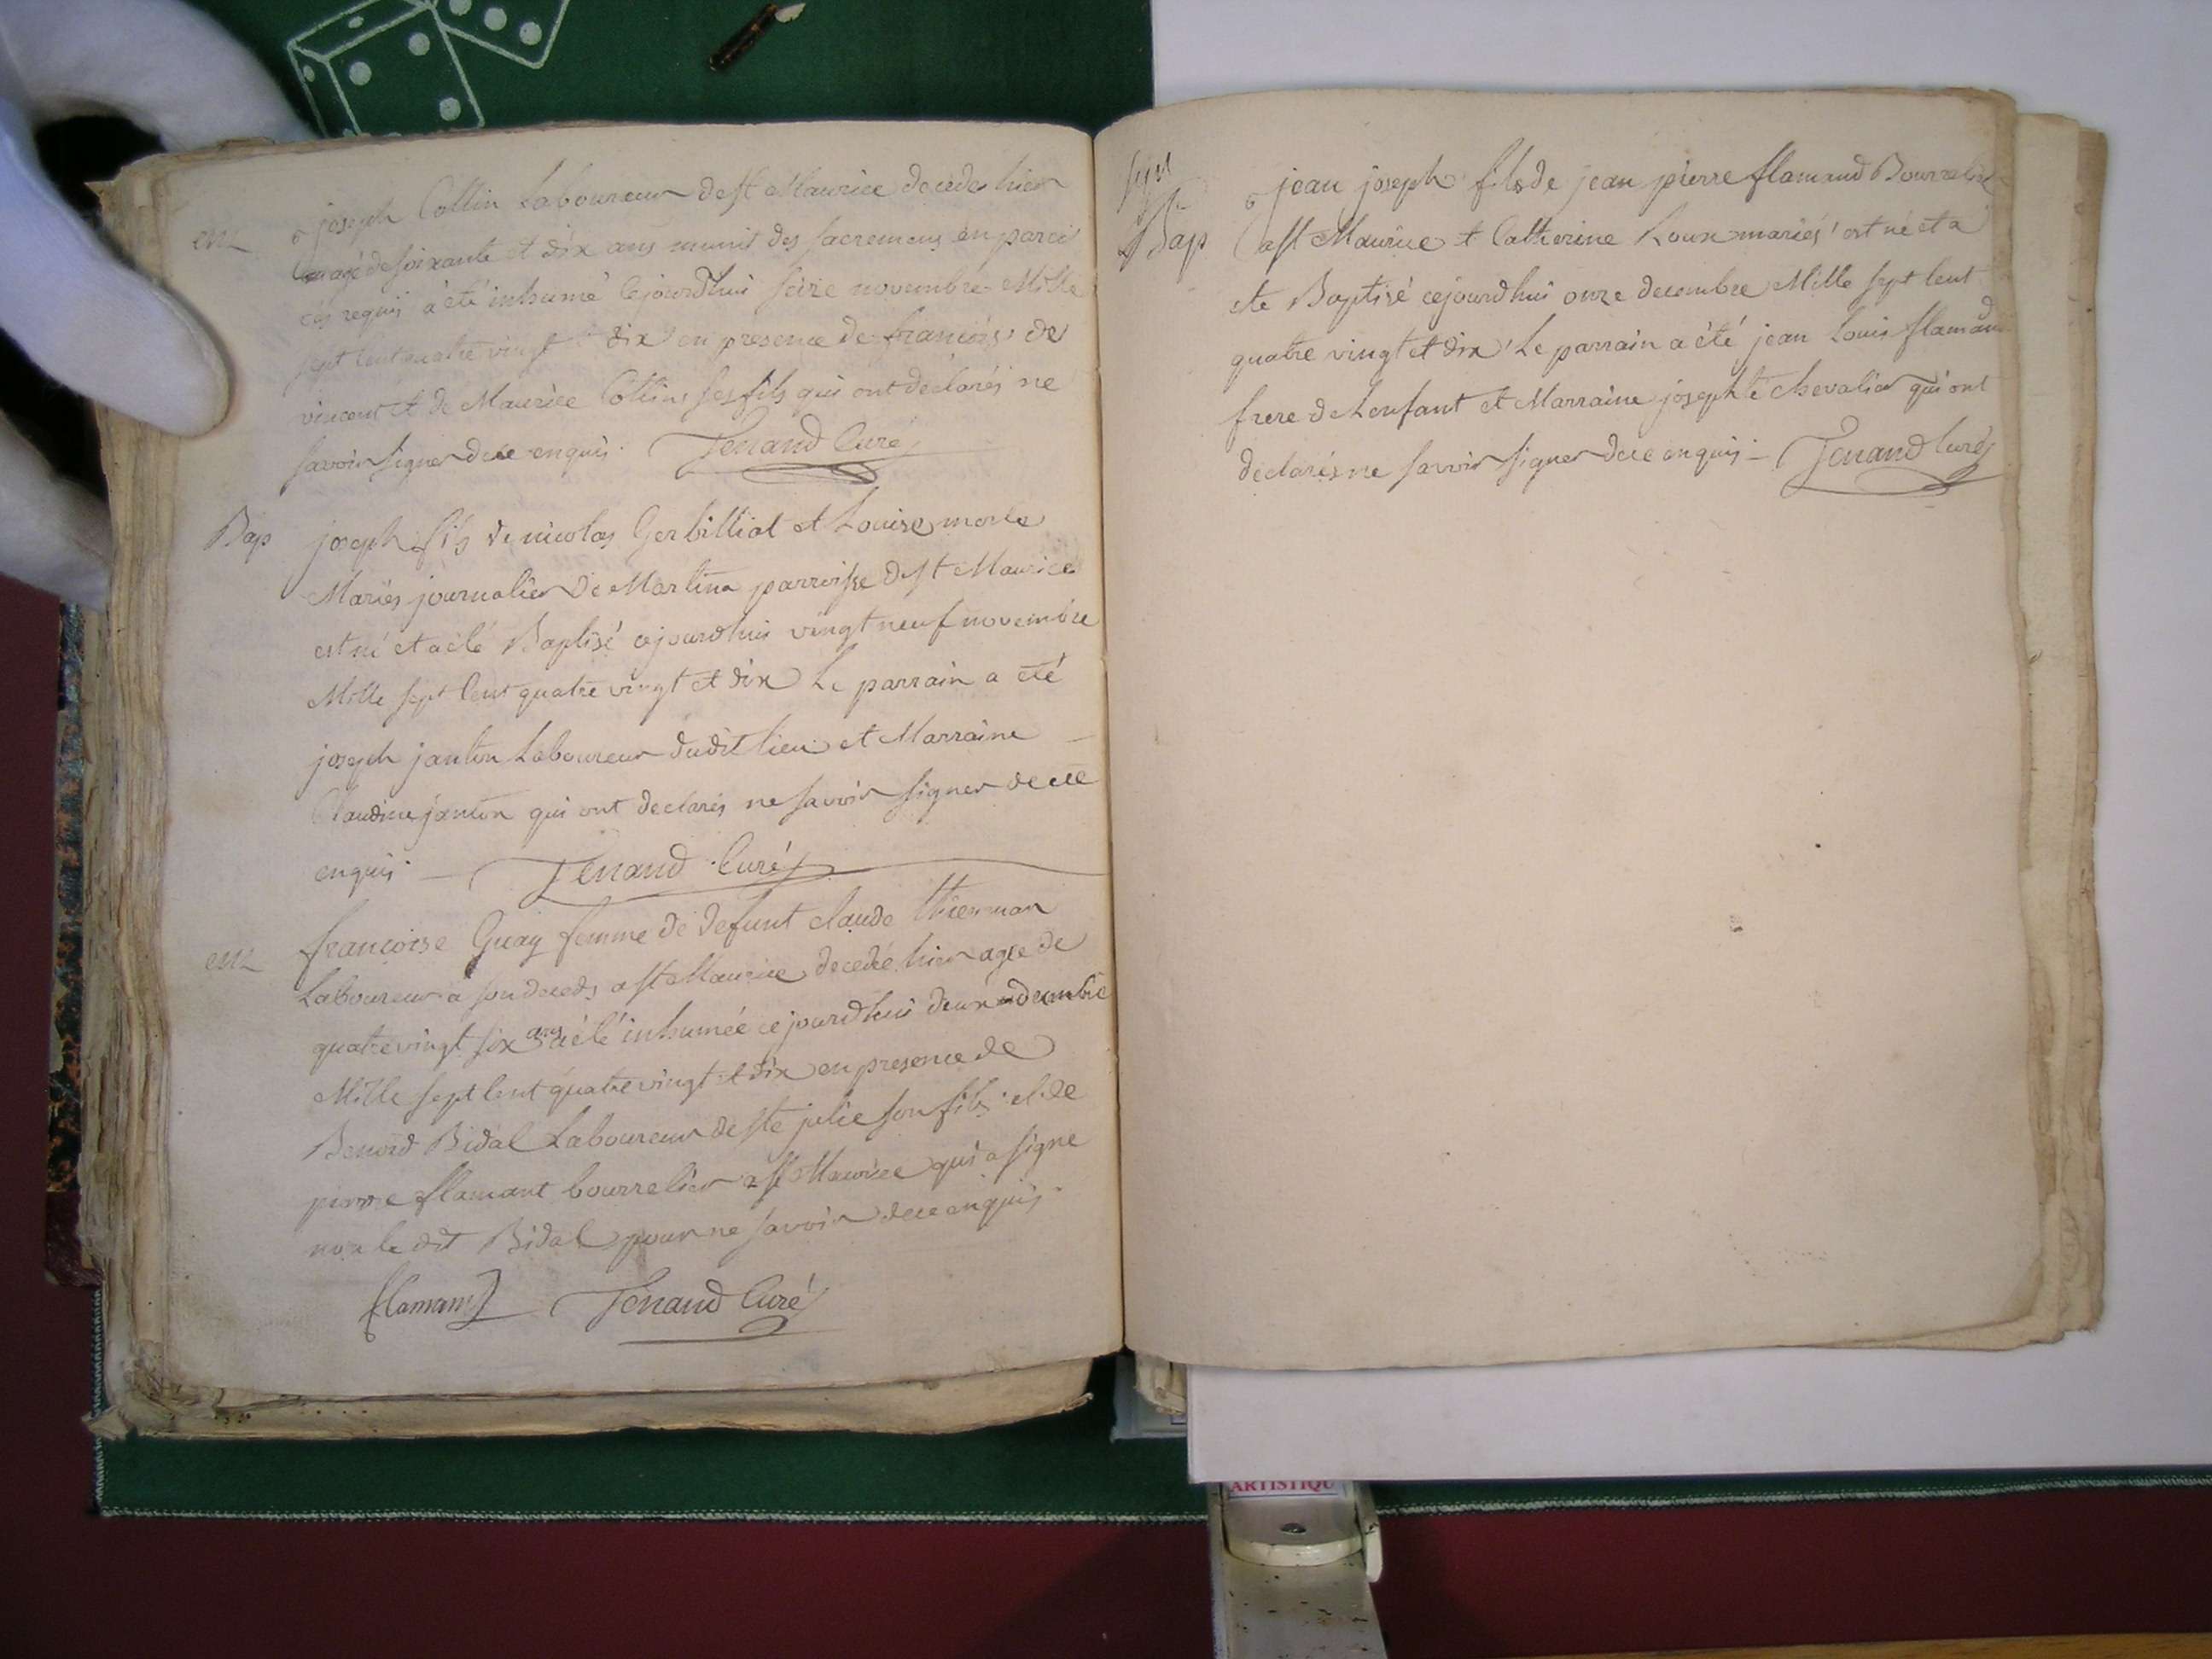 ent joseph Collin Laboureur de st Maurice decedes hier
agé de soixante et dix ans munit des sacremens en pareil
cas requis a été inhumé cejourdhui seize novembre Mille
sept Cent quatre vingt dix en presence de francois de
vincent et de Maurice Collin ses fils qui ont déclarés ne
savoir signer de ce enquis. Tenand Curé
Bap joseph fils de nicolas Gerbilliat et Louise morle
Mariés journalier de Martina parroisse de st Maurice
est né et a été Baptisé cejourdhui vingt neuf novembre
Mille sept Cent quatre vingt et dix Le parrain a été
joseph janton Laboureur dudit lieu et Marraine
Claudine janton qui ont declarés ne savoir signer de ce
enquis. Tenand Curé
ent francoise Guay femme de defunt claude thierman
Laboureur a son deceds a st Maurice decedé hier agée de
quatre vingt six ans a été inhumée cejourdhui deux decembre
Mille sept Cent quatre vingt et dix en presence de
Benoid Bidal Laboureur de ste julie son fils et de
pierre flamant bourrelier a st Maurice qui a signe
non le dit Bidal pour ne savoir de ce enquis.
flamant Tenand Curé
Bap jean joseph fils de jean pierre flamand Bourrelier
a st Maurice et Catherine Roux mariés est né et a
ete Baptisé cejourdhui onze decembre Mille sept Cent
quatre vingt et dix Le parrain a été jean Louis flamand
frere de Lenfant et Marraine josephte chevalier qui ont
déclarés ne savoir signer de ce enquis - Tenand Curé
ARTISTIQU